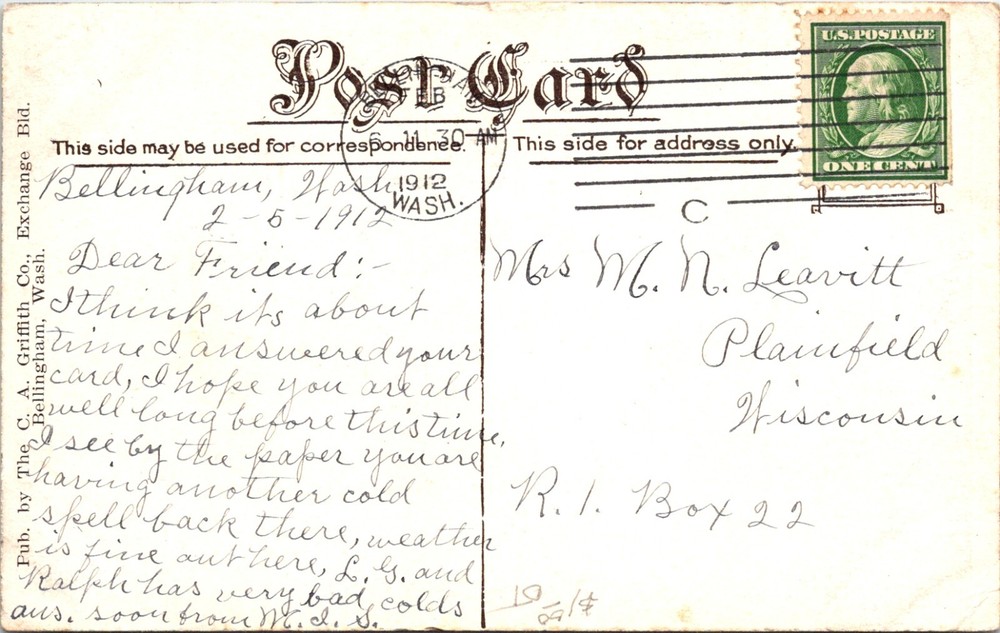 Post Card
This side may be used for correspondence.
This side for address only.
U.S. POSTAGE
ONE CENT
FEB
6 11 30 AM
1912
WASH.
C
Pub. by The C. A. Griffith Co., Exchange Bld.
Bellingham, Wash.
Bellingham, Wash.
2-5-1912
Dear Friend:-
I think its about
time I answered your
card, I hope you are all
well long before this time,
I see by the paper you are
having another cold
spell back there, weather
is fine out here, L. G. and
Ralph has very bad colds
ans. soon from M. I. S.
Mrs M. N. Leavitt
Plainfield
Wisconsin
R. 1. Box 22